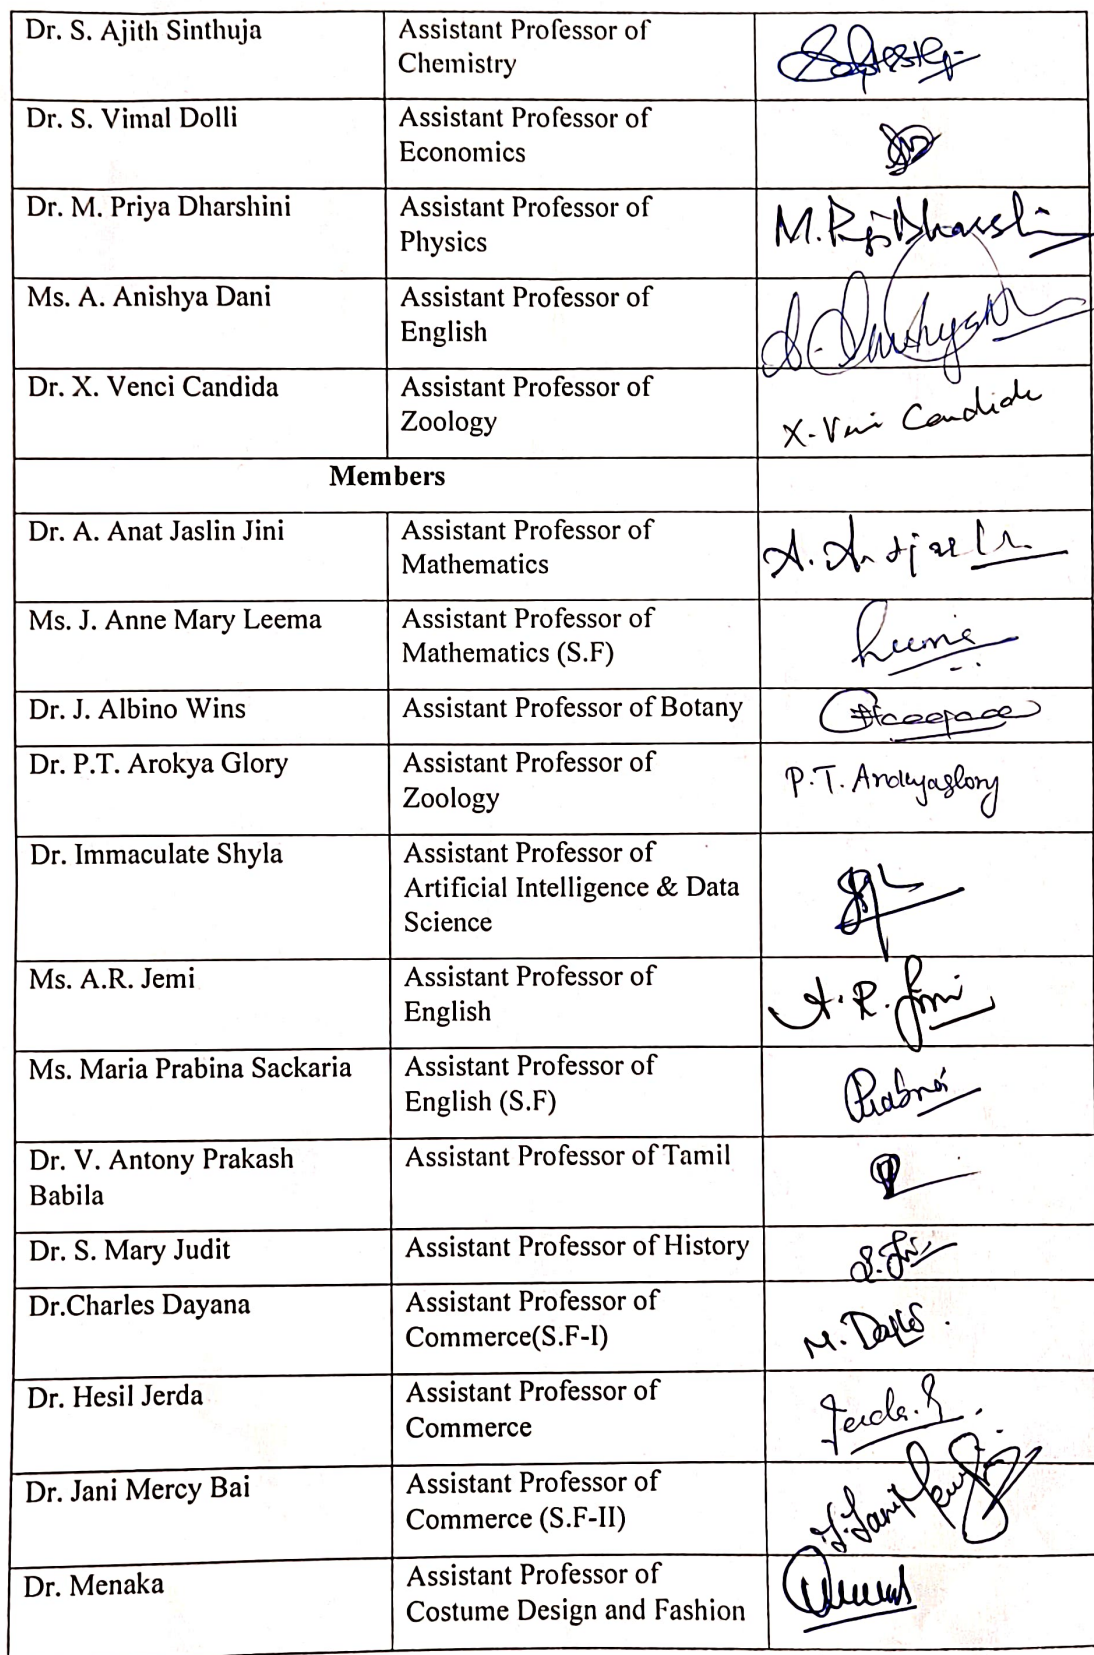 Dr. S. Ajith Sinthuja
Assistant Professor of
Chemistry
Dr. S. Vimal Dolli
Assistant Professor of
Economics
Dr. M. Priya Dharshini
Assistant Professor of
Physics
Ms. A. Anishya Dani
Assistant Professor of
English
Dr. X. Venci Candida
Assistant Professor of
Zoology
Members
Dr. A. Anat Jaslin Jini
Assistant Professor of
Mathematics
Ms. J. Anne Mary Leema
Assistant Professor of
Mathematics (S.F)
Dr. J. Albino Wins
Assistant Professor of Botany
Dr. P.T. Arokya Glory
Assistant Professor of
Zoology
P.T.
Dr. Immaculate Shyla
Assistant Professor of
Artificial Intelligence & Data
Science
Ms. A.R. Jemi
Assistant Professor of
English
A.R.
Ms. Maria Prabina Sackaria
Assistant Professor of
English (S.F)
Dr. V. Antony Prakash
Babila
Assistant Professor of Tamil
Dr. S. Mary Judit
Assistant Professor of History
Dr.Charles Dayana
Assistant Professor of
Commerce(S.F-I)
Dr. Hesil Jerda
Assistant Professor of
Commerce
Dr. Jani Mercy Bai
Assistant Professor of
Commerce (S.F-II)
Dr. Menaka
Assistant Professor of
Costume Design and Fashion